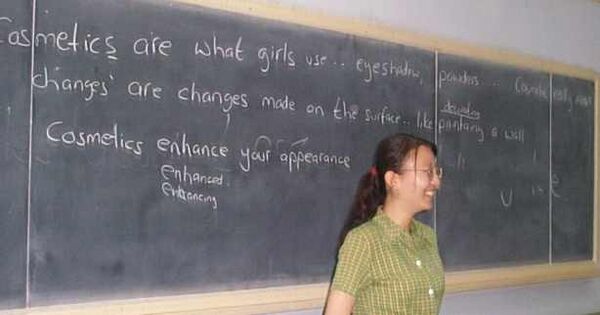 Cosmetics are what girls use.. eyeshadow, powders... Cosmetic really
changes' are changes made on the surface.. like painting a wall
decorating
Cosmetics enhance your appearance
enhanced
enhancing